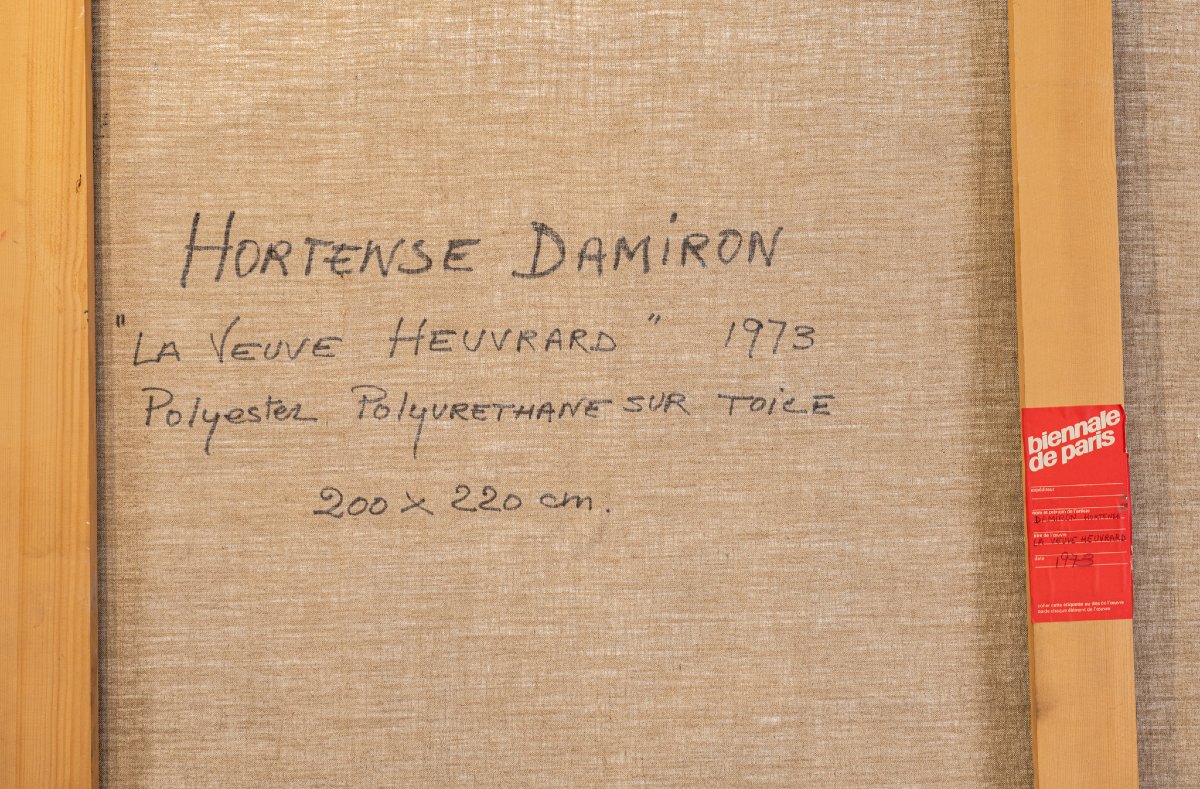 HORTENSE DAMIRON
"LA VEUVE HEUVRARD" 1973
Polyester POLYURETHANE SUR TOILE
200 x 220 cm.
biennale
de paris
expéditeur
nom et prénom de l'artiste
HORTENSE
titre de l'œuvre
LA VEUVE HEUVRARD
date 1973
coller cette étiquette au dos de l'œuvre
ou de chaque élément de l'œuvre